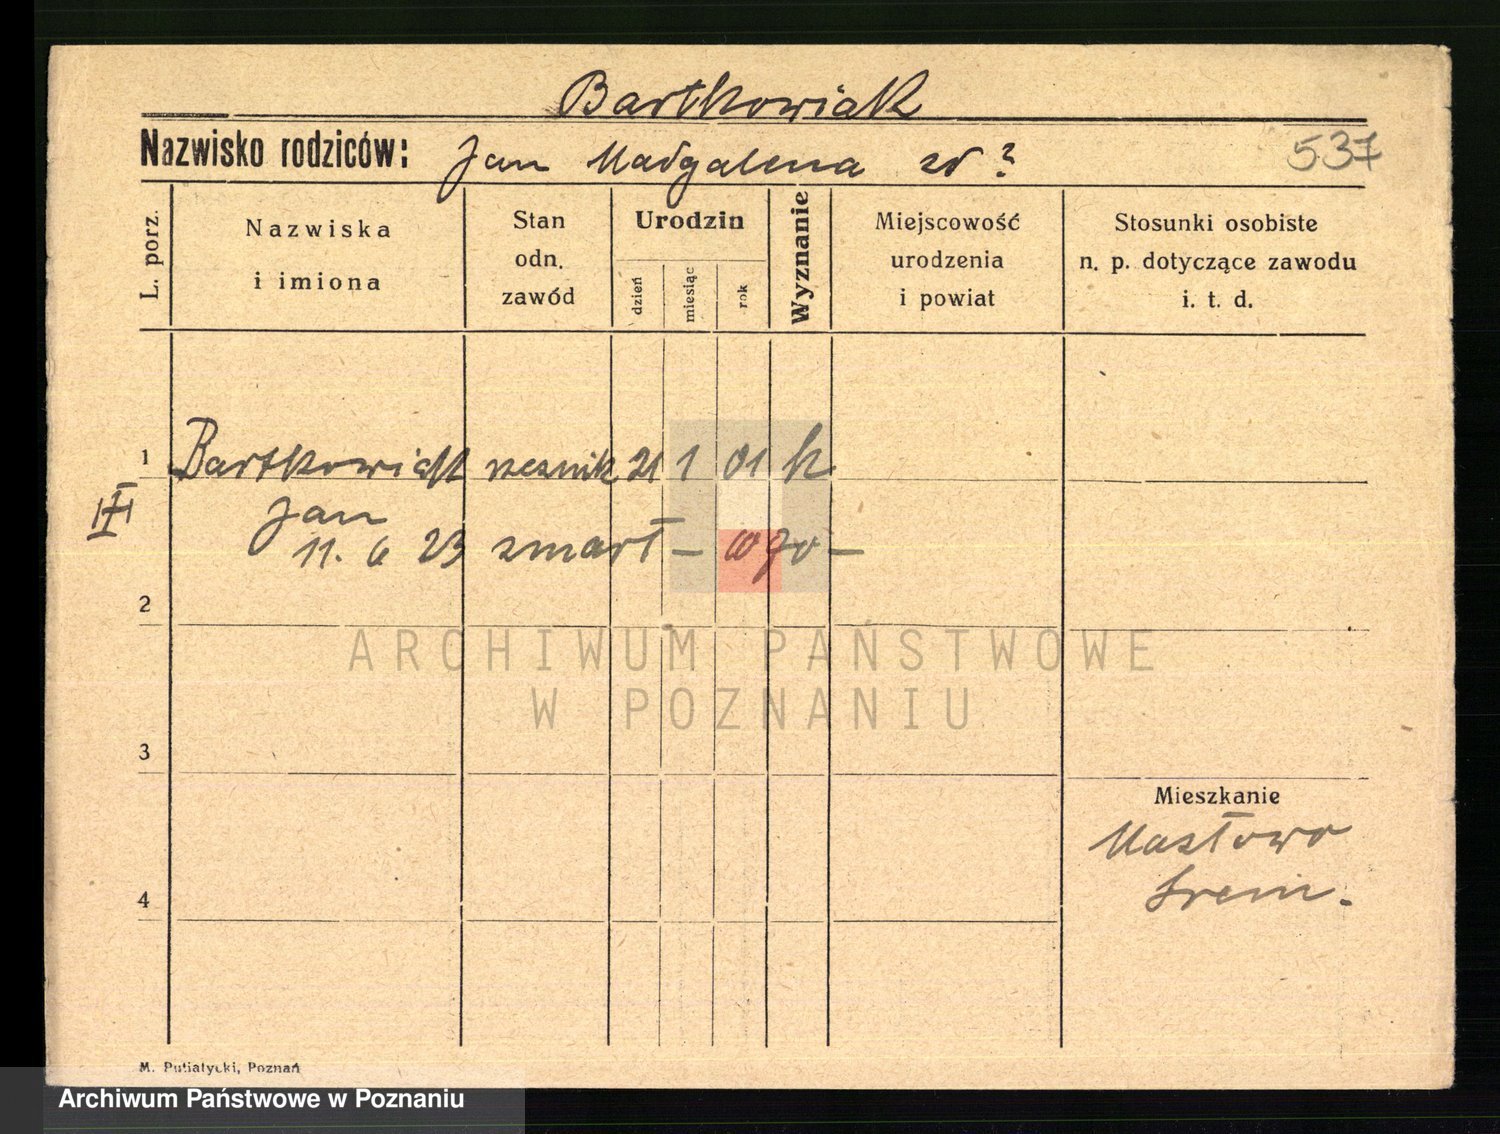 Bartkowiak
Nazwisko rodziców: Jan Madgalena zd ?
537
L. porz.
Nazwiska
i imiona
Stan
odn.
zawód
Urodzin
dzień
miesiąc
rok
Wyznanie
Miejscowość
urodzenia
i powiat
Stosunki osobiste
n. p. dotyczące zawodu
i. t. d.
1 Bartkowiak 21 1 01 k
III Jan
11. 6 23 zmarł
2
ARCHIWUM PAŃSTWOWE
W POZNANIU
3
Mieszkanie
Masłowo
Śrem.
4
M. Putiatycki, Poznań
Archiwum Państwowe w Poznaniu